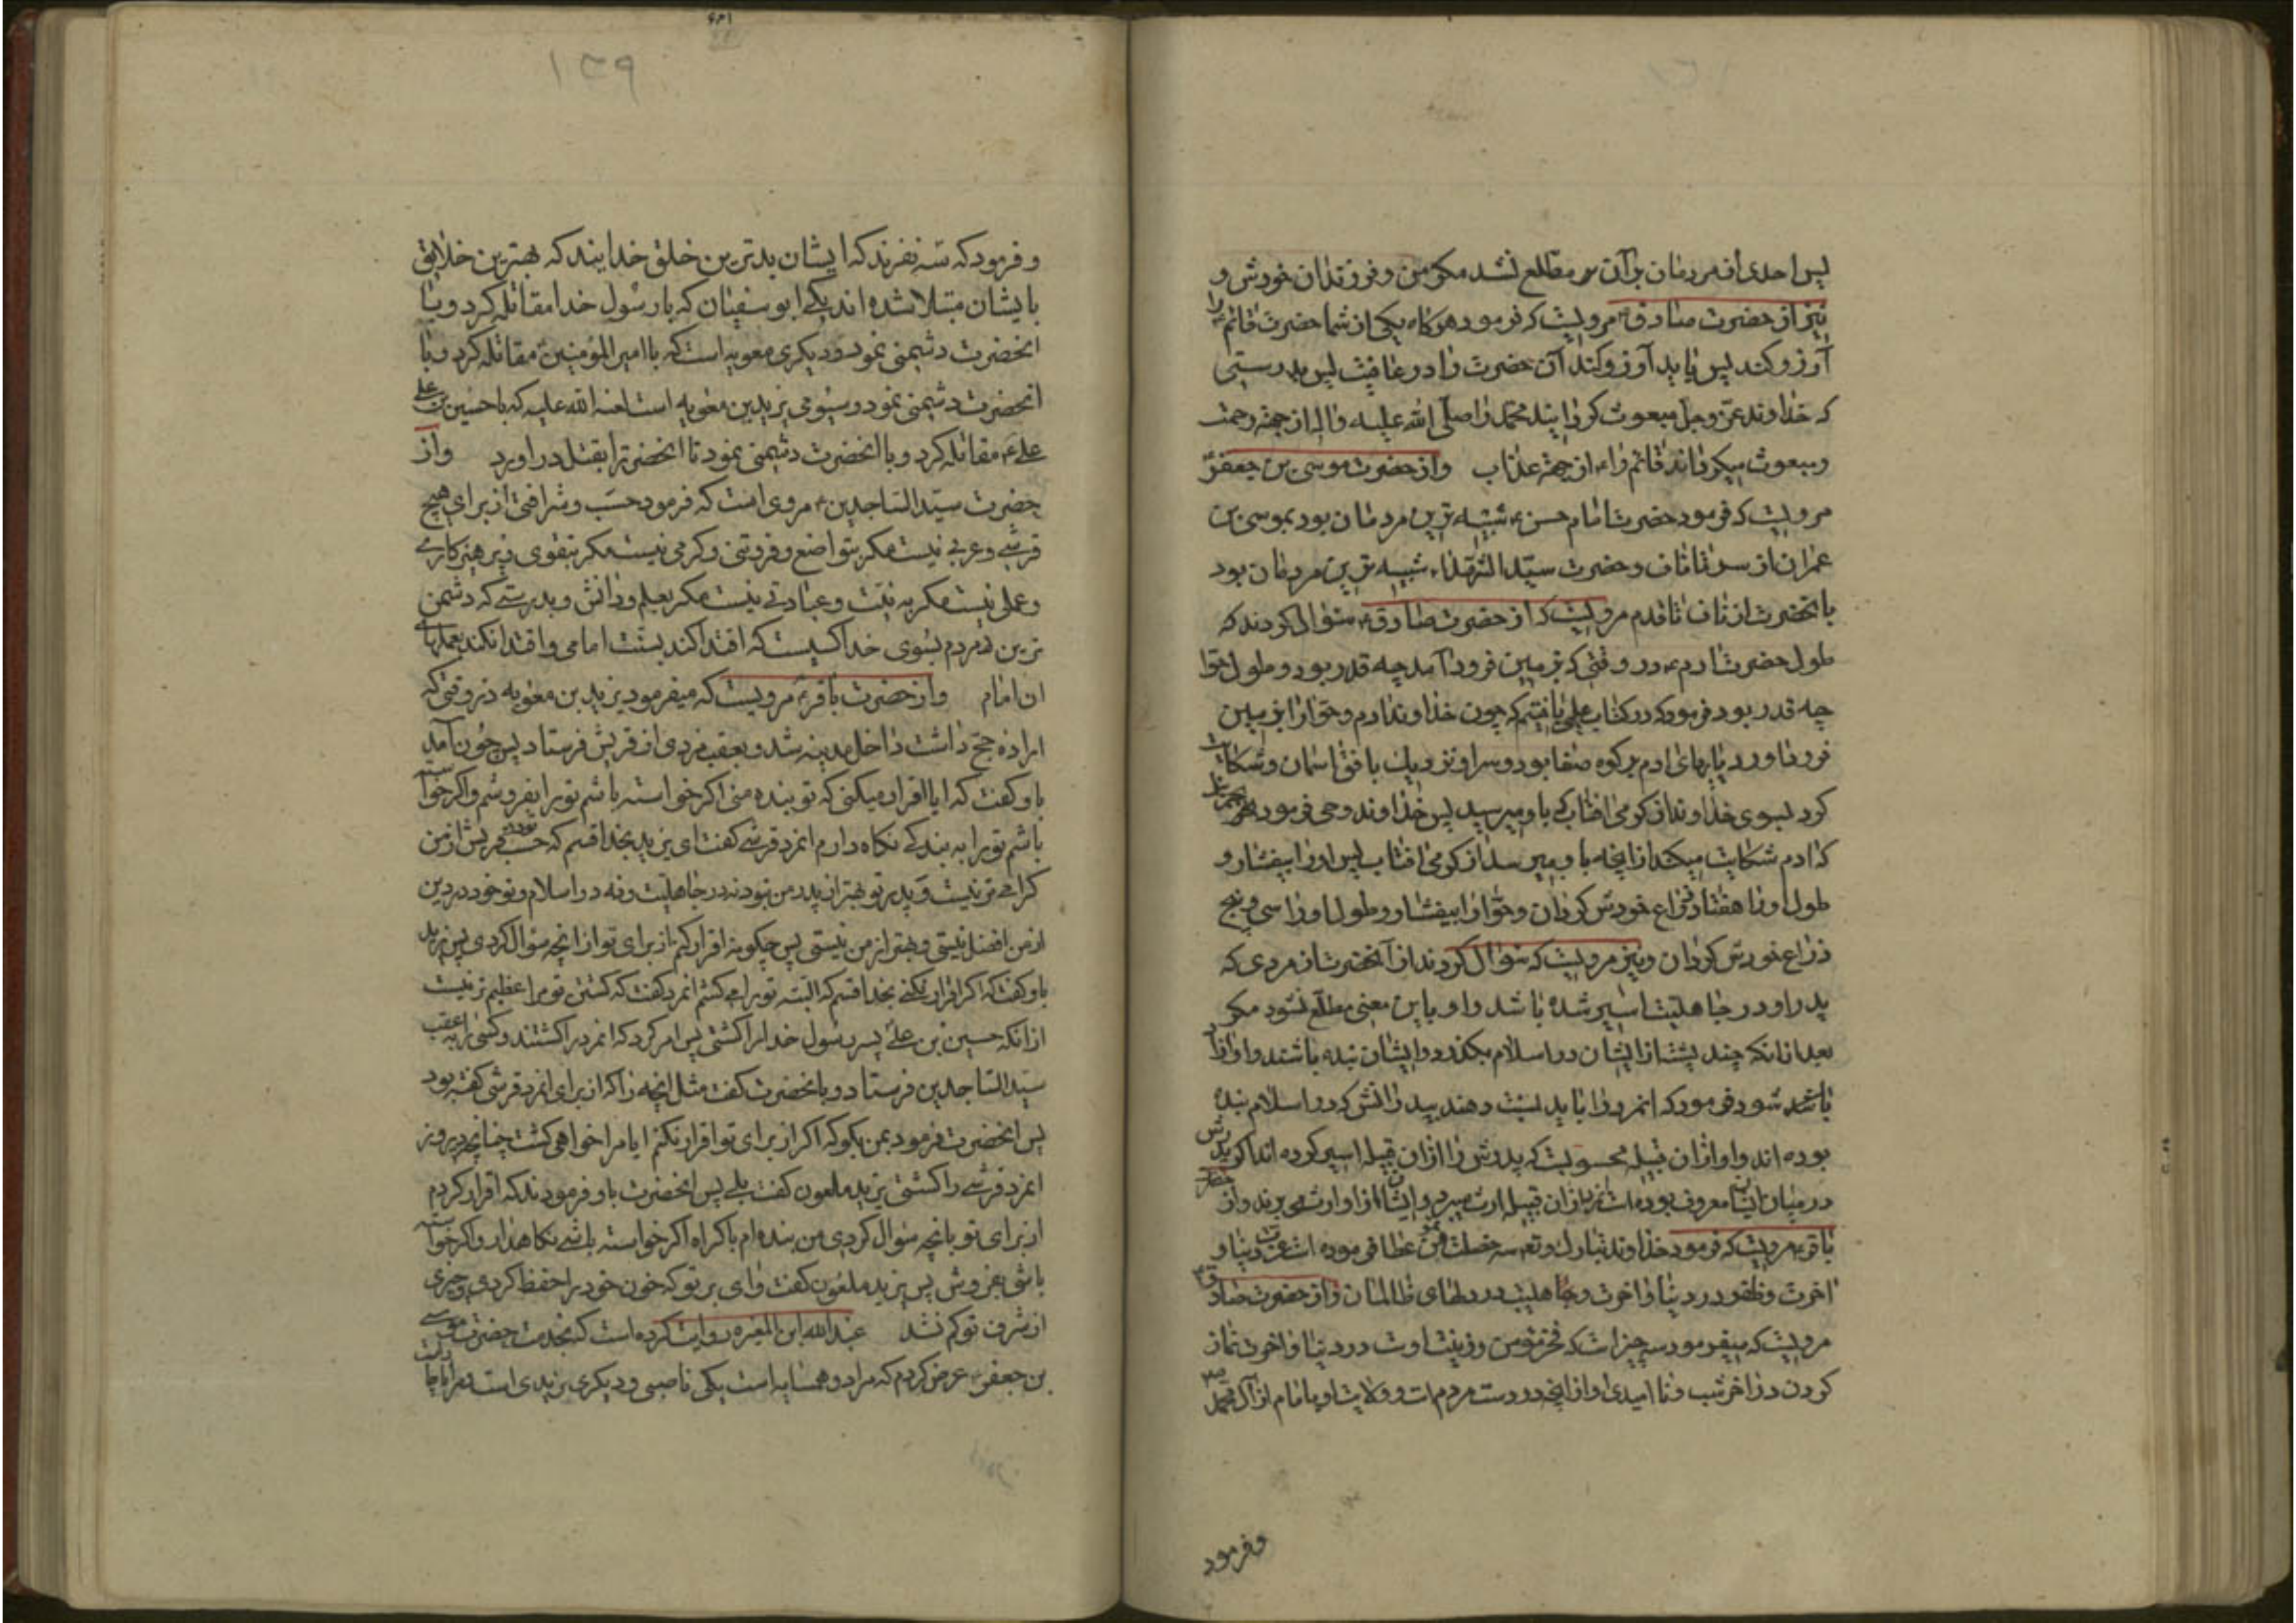 پس احدی از مردمان بر آن سر مطلع نشد مکر من و فرزندان خودش و
نیز از حضرت صادق ع مرویست که فرمود هرکاه یکی از شما حضرت قائم ع را
آرزو کند پس باید آرزو کند آن حضرت را در عافیت پس بدرستی
که خداوند عز و جل مبعوث کردانید محمد را صلی الله علیه و اله از جهة رحمت
و مبعوث میکرداند قائم را ع از جهة عذاب و از حضرت موسی بن جعفر ع
مرویست که فرمود حضرت امام حسن ع شبیه ترین مردمان بود بموسی بن
عمران از سر تا ناف و حضرت سید الشهداء ع شبیه ترین مردمان بود
بانحضرت از ناف تا قدم مرویست که از حضرت صادق ع سؤال کردند که
طول حضرت ادم ع در وقتی که بزمین فرود آمد چه قدر بود و طول حوا
چه قدر بود فرمود که در کتاب علی ع یافتیم که چون خداوند ادم و حوا را بزمین
فرود اورد پاهای ادم بر کوه صفا بود و سر او نزدیک بافق اسمان و شکایت
کرد بسوی خداوند از کرمی افتاب که باو میرسید پس خداوند وحی فرمود بجبرئیل
که ادم شکایت میکند از انچه باو میرسد از کرمی افتاب پس او را بیفشار و
طول او را هفتاد ذراع خودش کردان و حوا را بیفشار و طول او را سی و پنج
ذراع خودش کردان و نیز مرویست که سؤال کردند از آنحضرت از مردی که
پدر او در جاهلیت اسیر شده باشد و او باین معنی مطلع نشود مکر
بعد از انکه چند پشت از ایشان در اسلام بکذرد و ایشان بنده باشند و او ازاد
باشد شود فرمود که انمرد را باید نسبت دهند بپدرانش که در اسلام بنده
بوده اند و او از ان قبیله محسوبست که پدرش را از ان قبیله اسیر کرده اند اکر پدرش
در میان ایشان معروف بوده است نیز از ان قبیله ارث میبرد و ایشان از او ارث می برند و از حضرت
باقر ع مرویست که فرمود خداوند تبارک و تع سه خصلت بمؤمن عطا فرموده است عزت دنیا و
اخرت و ظفر در دنیا و اخرت و مهابت در دلهای ظالمان و از حضرت صادق ع
مرویست که میفرمود سه چیز است که فخر مؤمن و زینت اوست در دنیا و اخرت نماز
کردن در اخر شب و نا امیدی او از انچه در دست مردم است و ولایت او بامام از آل محمد ص
وفرمود
۱۳۹
و فرمود که سه نفرند که ایشان بدترین خلق خدایند که بهترین خلایق
بایشان مبتلا شده اند یکی ابو سفیان که با رسول خدا مقاتله کرد و با
انحضرت دشمنی نمود و دیکری معویه است که با امیر المؤمنین ع مقاتله کرد و با
انحضرت دشمنی نمود و سیومی یزید بن معویه است لعنه الله علیه که با حسین بن علی
علیهم مقاتله کرد و با انحضرت دشمنی نمود تا انحضرترا بقتل دراورد و از
حضرت سید الساجدین ع مروی است که فرمود حسب و شرافتی از برای هیچ
قرشی و عربی نیست مکر بتواضع و فروتنی و کرمی نیست مکر بتقوی و پرهیزکاری
و عملی نیست مکر به نیت و عبادتی نیست مکر بعلم و دانش و بدرستی که دشمن
ترین مردم بسوی خدا کسیست که اقتدا کند بسنت امامی و اقتدا نکند بعملهای
ان امام و از حضرت باقر ع مرویست که میفرمود یزید بن معویه در وقتی که
اراده حج داشت داخل مدینه شد و بعقب مردی از قریش فرستاد پس چون آمد
باو کفت که ایا اقرار میکنی که تو بنده منی اکر خواسته باشم تو را بفروشم و اکر خواسته
باشم تو را به بندکی نکاه دارم انمرد قرشی کفت ای یزید بخدا قسم که حسب تو در قریش از من
کرامی تر نیست و پدر تو بهتر از پدر من نبود نه در جاهلیت و نه در اسلام و تو خود در دین
از من افضل نیستی و بهتر از من نیستی پس چکونه اقرار کنم از برای تو از انچه سؤال کردی پس یزید
باو کفت که اکر اقرار نکنی بخدا قسم که البته تو را می کشم انمرد کفت که کشتن تو مرا عظیم تر نیست
از انکه حسین بن علی پسر رسول خدا را کشتی پس امر کرد که انمرد را کشتند و کسی را به عقب
سید الساجدین فرستاد و بانحضرت کفت مثل انچه را که از برای انمرد قرشی کفته بود
پس انحضرت فرمود بمن بکو که اکر از برای تو اقرار نکنم ایا مرا خواهی کشت چنانچه دیروز
انمرد قرشی را کشتی یزید ملعون کفت بلی پس انحضرت باو فرمودند که اقرار کردم
از برای تو بانچه سؤال کردی من بنده ام باکراه اکر خواسته باشی نکاهدار و اکر خواسته
باشی بفروش پس یزید ملعون کفت وای بر تو که خون خود را حفظ کردی و چیزی
از شرف تو کم نشد عبد الله ابن المغیره روایت کرده است که بخدمت حضرت موسی
بن جعفر ع عرض کردم که مرا دو همسایه است یکی ناصبی و دیکری زیدی است و مرا ناچار